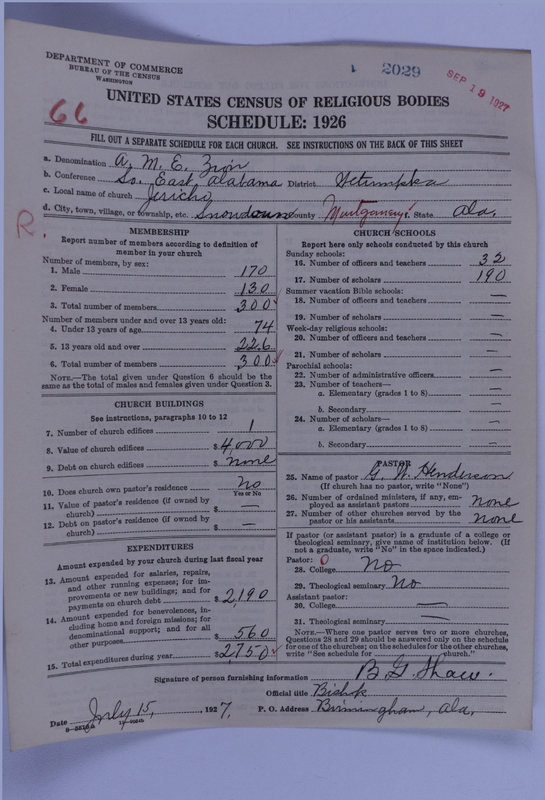 DEPARTMENT OF COMMERCE
BUREAU OF THE CENSUS
WASHINGTON
2029
SEP 19 1927
66
UNITED STATES CENSUS OF RELIGIOUS BODIES
SCHEDULE: 1926
FILL OUT A SEPARATE SCHEDULE FOR EACH CHURCH. SEE INSTRUCTIONS ON THE BACK OF THIS SHEET
a. Denomination A. M. E. Zion
b. Conference So. East Alabama District Wetumpka
c. Local name of church Jericho
d. City, town, village, or township, etc. Snowdoun County Montgomery State Ala.
R.
MEMBERSHIP
Report number of members according to definition of member in your church
Number of members, by sex:
1. Male 170
2. Female 130
3. Total number of members 300
Number of members under and over 13 years old:
4. Under 13 years of age 74
5. 13 years old and over 226
6. Total number of members 300
NOTE.—The total given under Question 6 should be the same as the total of males and females given under Question 3.
CHURCH BUILDINGS
See instructions, paragraphs 10 to 12
7. Number of church edifices 1
8. Value of church edifices $ 4,000
9. Debt on church edifices $ none
10. Does church own pastor's residence? No
Yes or No
11. Value of pastor's residence (if owned by church) $ —
12. Debt on pastor's residence (if owned by church) $ —
EXPENDITURES
Amount expended by your church during last fiscal year
13. Amount expended for salaries, repairs, and other running expenses; for improvements or new buildings; and for payments on church debt $ 2,190
14. Amount expended for benevolences, including home and foreign missions; for denominational support; and for all other purposes $ 560
15. Total expenditures during year $ 2750
CHURCH SCHOOLS
Report here only schools conducted by this church
Sunday schools:
16. Number of officers and teachers 32
17. Number of scholars 190
Summer vacation Bible schools:
18. Number of officers and teachers —
19. Number of scholars —
Week-day religious schools:
20. Number of officers and teachers —
21. Number of scholars —
Parochial schools:
22. Number of administrative officers —
23. Number of teachers—
a. Elementary (grades 1 to 8) —
b. Secondary —
24. Number of scholars—
a. Elementary (grades 1 to 8) —
b. Secondary —
PASTOR
25. Name of pastor G. W. Henderson
(If church has no pastor, write "None")
26. Number of ordained ministers, if any, employed as assistant pastors none
27. Number of other churches served by the pastor or his assistants none
If pastor (or assistant pastor) is a graduate of a college or theological seminary, give name of institution below. (If not a graduate, write "No" in the space indicated.)
Pastor: 0
28. College No
29. Theological seminary No
Assistant pastor:
30. College —
31. Theological seminary —
NOTE.—Where one pastor serves two or more churches, Questions 28 and 29 should be answered only on the schedule for one of the churches; on the schedules for the other churches, write "See schedule for church."
Signature of person furnishing information B. G. Shaw.
Official title Bishop
Date July 15, 1927. P. O. Address Birmingham, Ala.